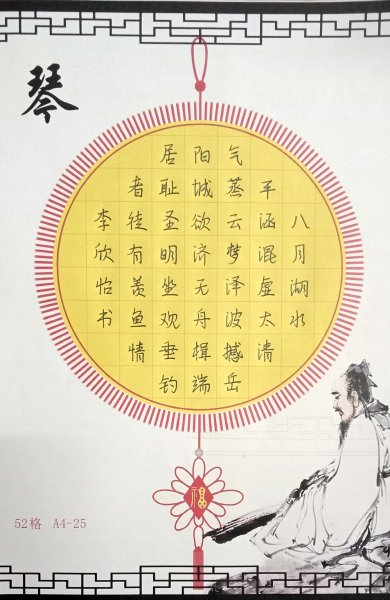 琴
八月湖水
平涵混虚太清
气蒸云梦泽波撼岳
阳城欲济无舟楫端
居耻圣明坐观垂钓
者徒有羡鱼情
李欣怡书
福
52格 A4-25
1